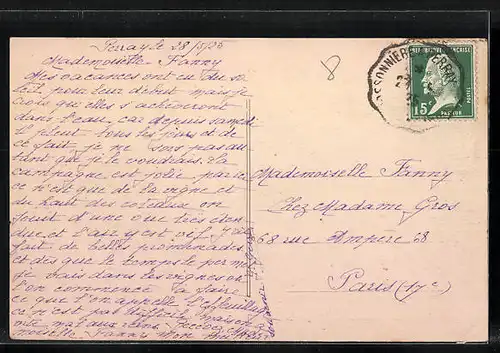 Perray le 28/5/25
Mademoiselle Fanny
Mes vacances ont eu du so
leil pour leur début mais je
crois qu'elles s'achèveront
dans l'eau, car depuis samedi
il pleut tous les jours et de
ce fait je ne sors pas au
tant que je le voudrais. la
campagne est jolie, par ici
ce n'est que de la vigne et
du haut des coteaux on
jouit d'une vue très éten
due et l'air y est vif. j'ai
fait de belles promenades
et dès que le temps le permet
je vais dans les vignes on
l'on commence à faire
ce que l'on appelle
ce n'est pas difficile mais on a
vite mal aux reins. Recevez
moiselle Fanny mon
8
RÉPUBLIQUE FRANÇAISE
15c
POSTES
PASTEUR
Mademoiselle Fanny
Chez Madame Gros
68 rue Ampère 68
Paris (17e)